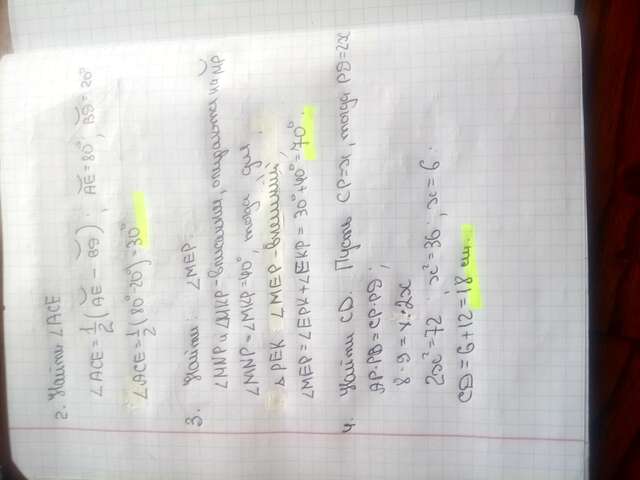 2. Найти ∠ACE
∠ACE = 1/2 (A͡E − B͡D), A͡E = 80°, B͡D = 20°
∠ACE = 1/2 (80° − 20°) = 30°
3. Найти: ∠MEP.
∠MNP и ∠MKP - вписанные, опираются на M͡P
∠MNP = ∠MKP = 40°, тогда для
△ PEK ∠MEP - внешний,
∠MEP = ∠EPK + ∠EKP = 30° + 40° = 70°.
4. Найти CD. Пусть CP = x, тогда PD = 2x
AP·PB = CP·PD;
8·9 = x·2x
2x² = 72, x² = 36, x = 6.
CD = 6 + 12 = 18 см.